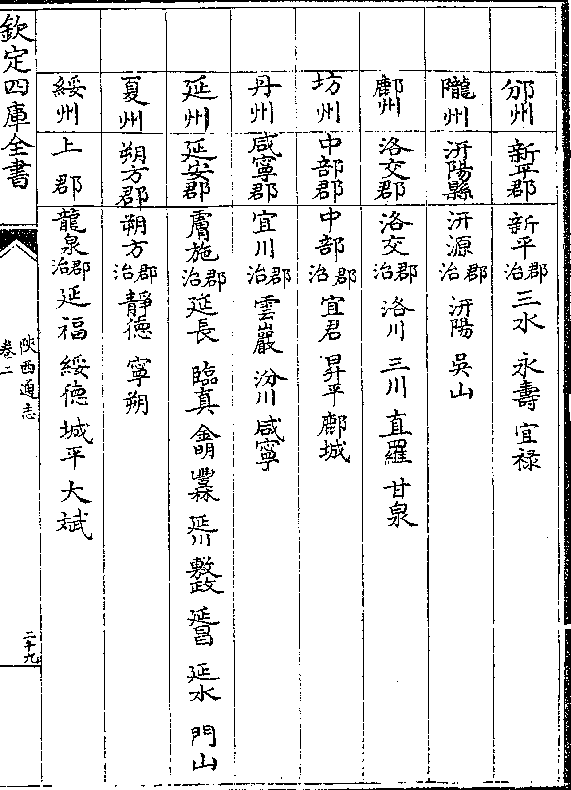 邠州 新平郡 新平郡治 三水 永壽 宜祿
隴州 汧陽縣 汧源郡治 汧陽 吳山
鄜州 洛交郡 洛交郡治 洛川 三川 直羅 甘泉
坊州 中部郡 中部郡治 宜君 昇平 鄜城
丹州 咸寧郡 宜川郡治 雲巖 汾川 咸寧
延州 延安郡 膚施郡治 延長 臨真 金明 豐林 延川 敷政 延昌 延水 門山
夏州 朔方郡 朔方郡治 靜德 寧朔
綏州 上郡 龍泉郡治 延福 綏德 城平 大斌
欽定四庫全書
陜西通志
卷二
二十九